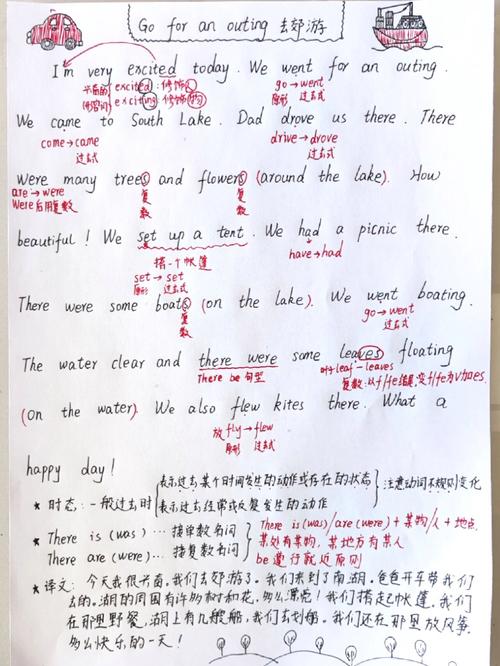 Go for an outing 去郊游
I'm very excited today. We went for an outing.
兴奋的 excited: 修饰人 go→went
(形容词) exciting: 修饰物 原形 过去式
We came to South Lake. Dad drove us there. There
come→came drive→drove
过去式 过去式
were many trees and flowers (around the lake). How
are→were 复数 复数
Were后用复数
beautiful! We set up a tent. We had a picnic there.
搭一个帐篷 have→had
set→set
原形 过去式
There were some boats (on the lake). We went boating.
复数 go→went
过去式
The water clear and there were some leaves floating
There be句型 叶子leaf-leaves
复数:以f/fe结尾,变f/fe为v加es.
(on the water). We also flew kites there. What a
放fly→flew
原形 过去式
happy day!
表示过去某个时间发生的动作或存在的状态
★ 时态:一般过去时 注意动词不规则变化
表示过去经常或反复发生的动作
★ There is (was) ... 接单数名词 There is(was)/are(were)+某物/人+地点.
There are (were)... 接复数名词 某处有某物,某地方有某人
be遵行就近原则
★ 译文: 今天我很兴奋,我们去郊游了。我们来到了南湖。爸爸开车带我们
去的。湖的周围有许多树和花。多么漂亮!我们搭起帐篷,我们
在那里野餐,湖上有几艘船,我们去划船。我们还在那里放风筝,
多么快乐的一天!